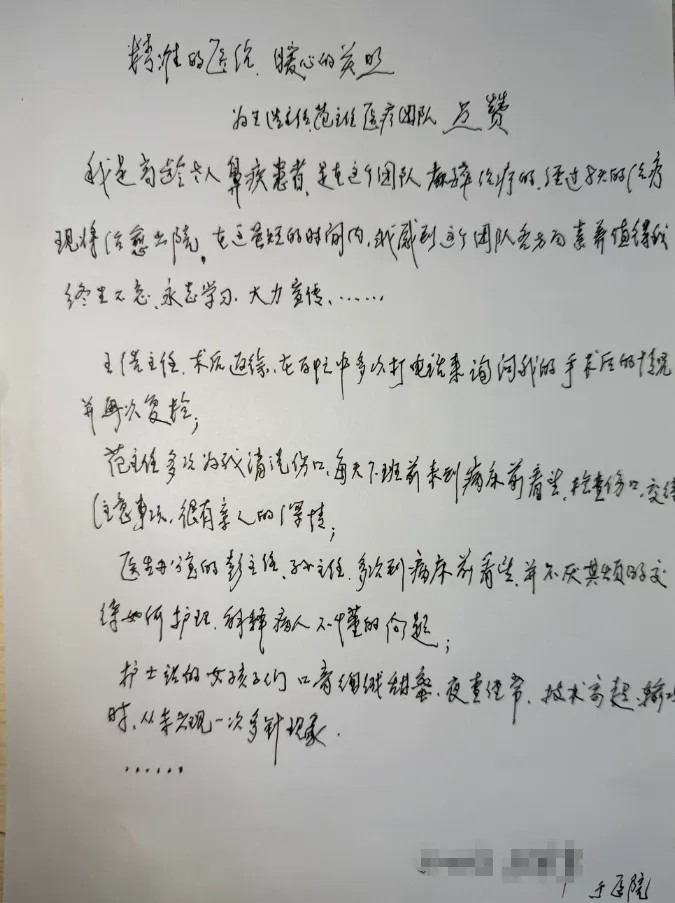 精准的医治、暖心的关照
为王浩主任范主任医疗团队 点赞
我是高龄老人鼻疾患者,是在这个团队 治疗的,经过8天的治疗
现将治愈出院。在这最短的时间内,我感到这个团队各方面素养值得我
终生不忘、永志学习、大力宣传、……
主任、术后返综、在百忙中多次打电话来询问我的手术后的情况
并再次复检;
范主任多次为我清洗伤口,每天下班前来到病床前看望,检查伤口,交待
注意事项,很有亲人的深情;
医生办公室的彭主任、孙主任,多次到病床前看望,并不厌其烦的交
待如何护理、解释病人不懂的问题;
护士站的女孩子们 口音细绒甜、夜查经常、技术高超、输
时,从未出现一次多针现象.
……
于医院